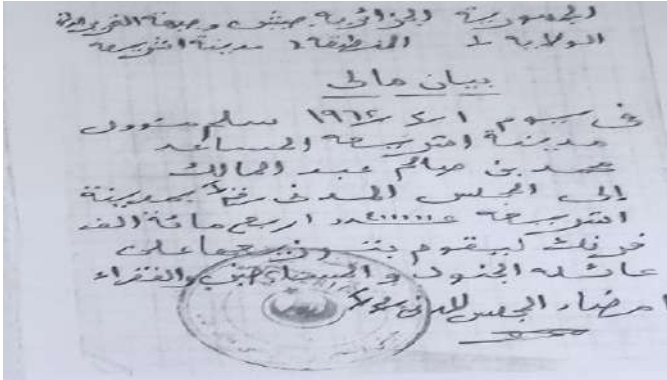 الجمهورية الجزائرية جيش وجبهة التحرير الوطني
الولاية 1 المنطقة مدينة الشريعة
بيان مالي
في يوم 1962 سلم مسؤول
مدينة الشريعة المساعد
محمد بن صالح عبد المالك
إلى المجلس المدني بمدينة
الشريعة اربع مائة الف
فرنك ليقوم بتوزيعها على
عائلة الجنود و المساجين والفقراء
امضاء المجلس المدني